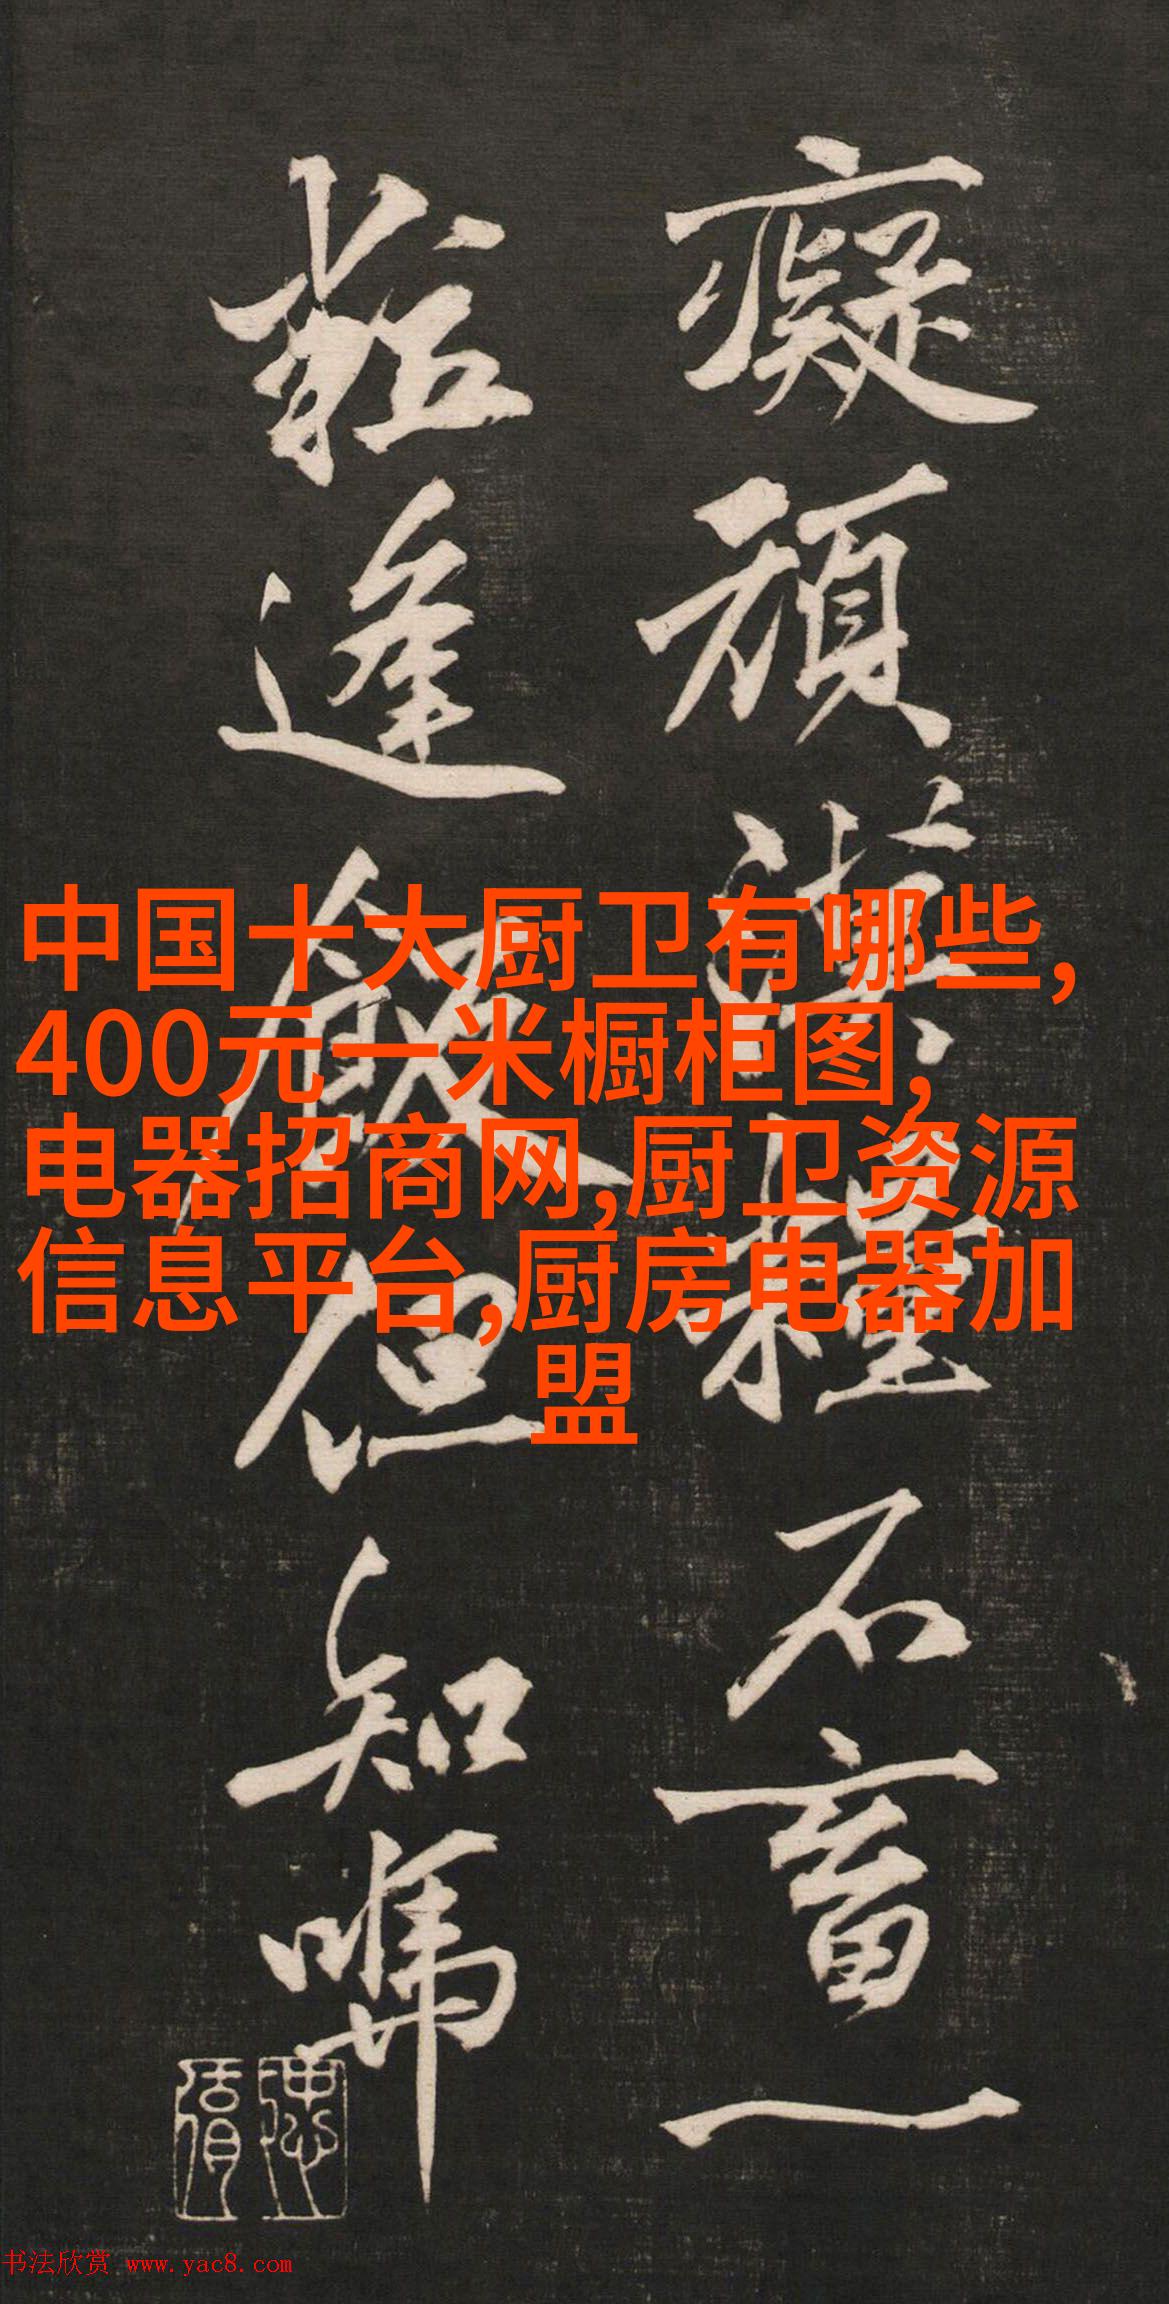 癡頑漢糧不畜一
粒逢飯但知
中国十大厨卫有哪些,
400元一米橱柜图,
电器招商网,厨卫资源
信息平台,厨房电器加
盟
书法欣赏 www.yac8.com